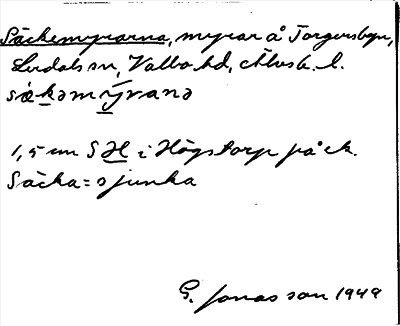 Säckemyrarna, myrar å Torgersbyn,
Lerdals sn, Valbo hd, Älvsb. l.
sækəmỳranə
1,5 km S H i Högstorp på ek.
Säcka = sjunka
G. Jonasson 1949